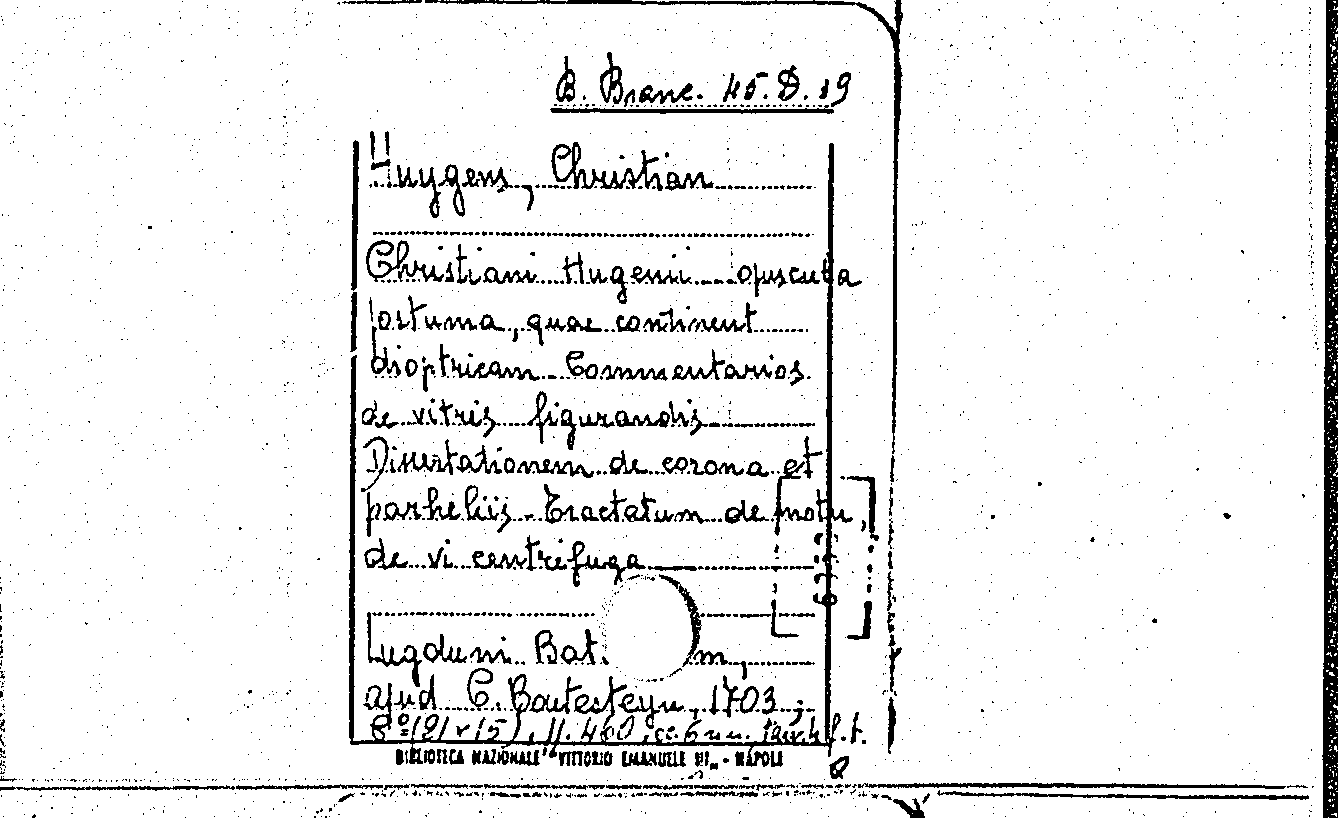 B. Branc. 45. D. 19
Huygens, Christian
Christiani Hugenii opuscula
postuma, quae continent
dioptricam - Commentarios
de vitris figurandis
Dissertationem de corona et
parheliis - Tractatum de motu,
de vi centrifuga
Lugduni Bat. m,
apud C. Boutesteyn, 1703;
8º (21 x 15), pp. 460, cc. 6 nn. tav. 4 f. t.
BIBLIOTECA NAZIONALE "VITTORIO EMANUELE III" - NAPOLI